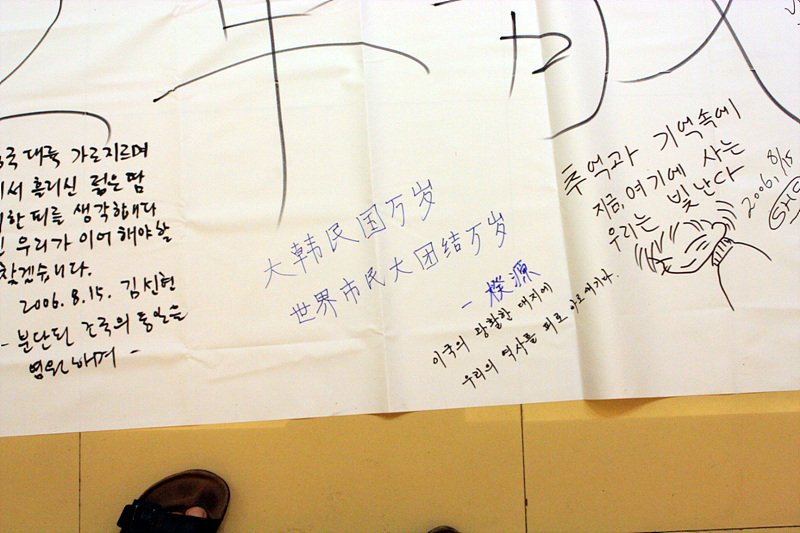 대륙 가로지르며
흘리신 젊은 땀
피를 생각합니다
우리가 이어 해야할
찾겠습니다.
2006. 8. 15. 김신현
- 분단된 조국의 통일을
염원하며 -
大韩民国万岁
世界市民大团结万岁
- 楑源
이국의 광활한 대지에
우리의 역사를 피로 아로새기다.
추억과 기억속에
지금, 여기에 사는
우리는 빛난다
2006. 8/15